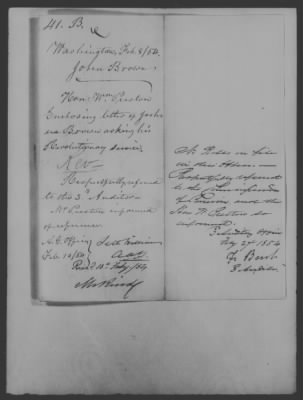 41. B.
Washington, Feb. 8/54
John Brown
Hon. Wm. Preston
Enclosing letter of Josh-
ua Bowen asking his
Revolutionary service.
Rev
Respectfully referred
to the 3d Auditor
Mr Preston informed
of reference
A. G. Office
Feb. 10/54
Recd 10th Feby /54
No Rolls on file
in this Office.
Respectfully referred
to the Commissioner
of Pensions and the
Hon W. Preston so
informed
3 Auditors Office
Feby 27th 1854
F. Burt
3 Auditor